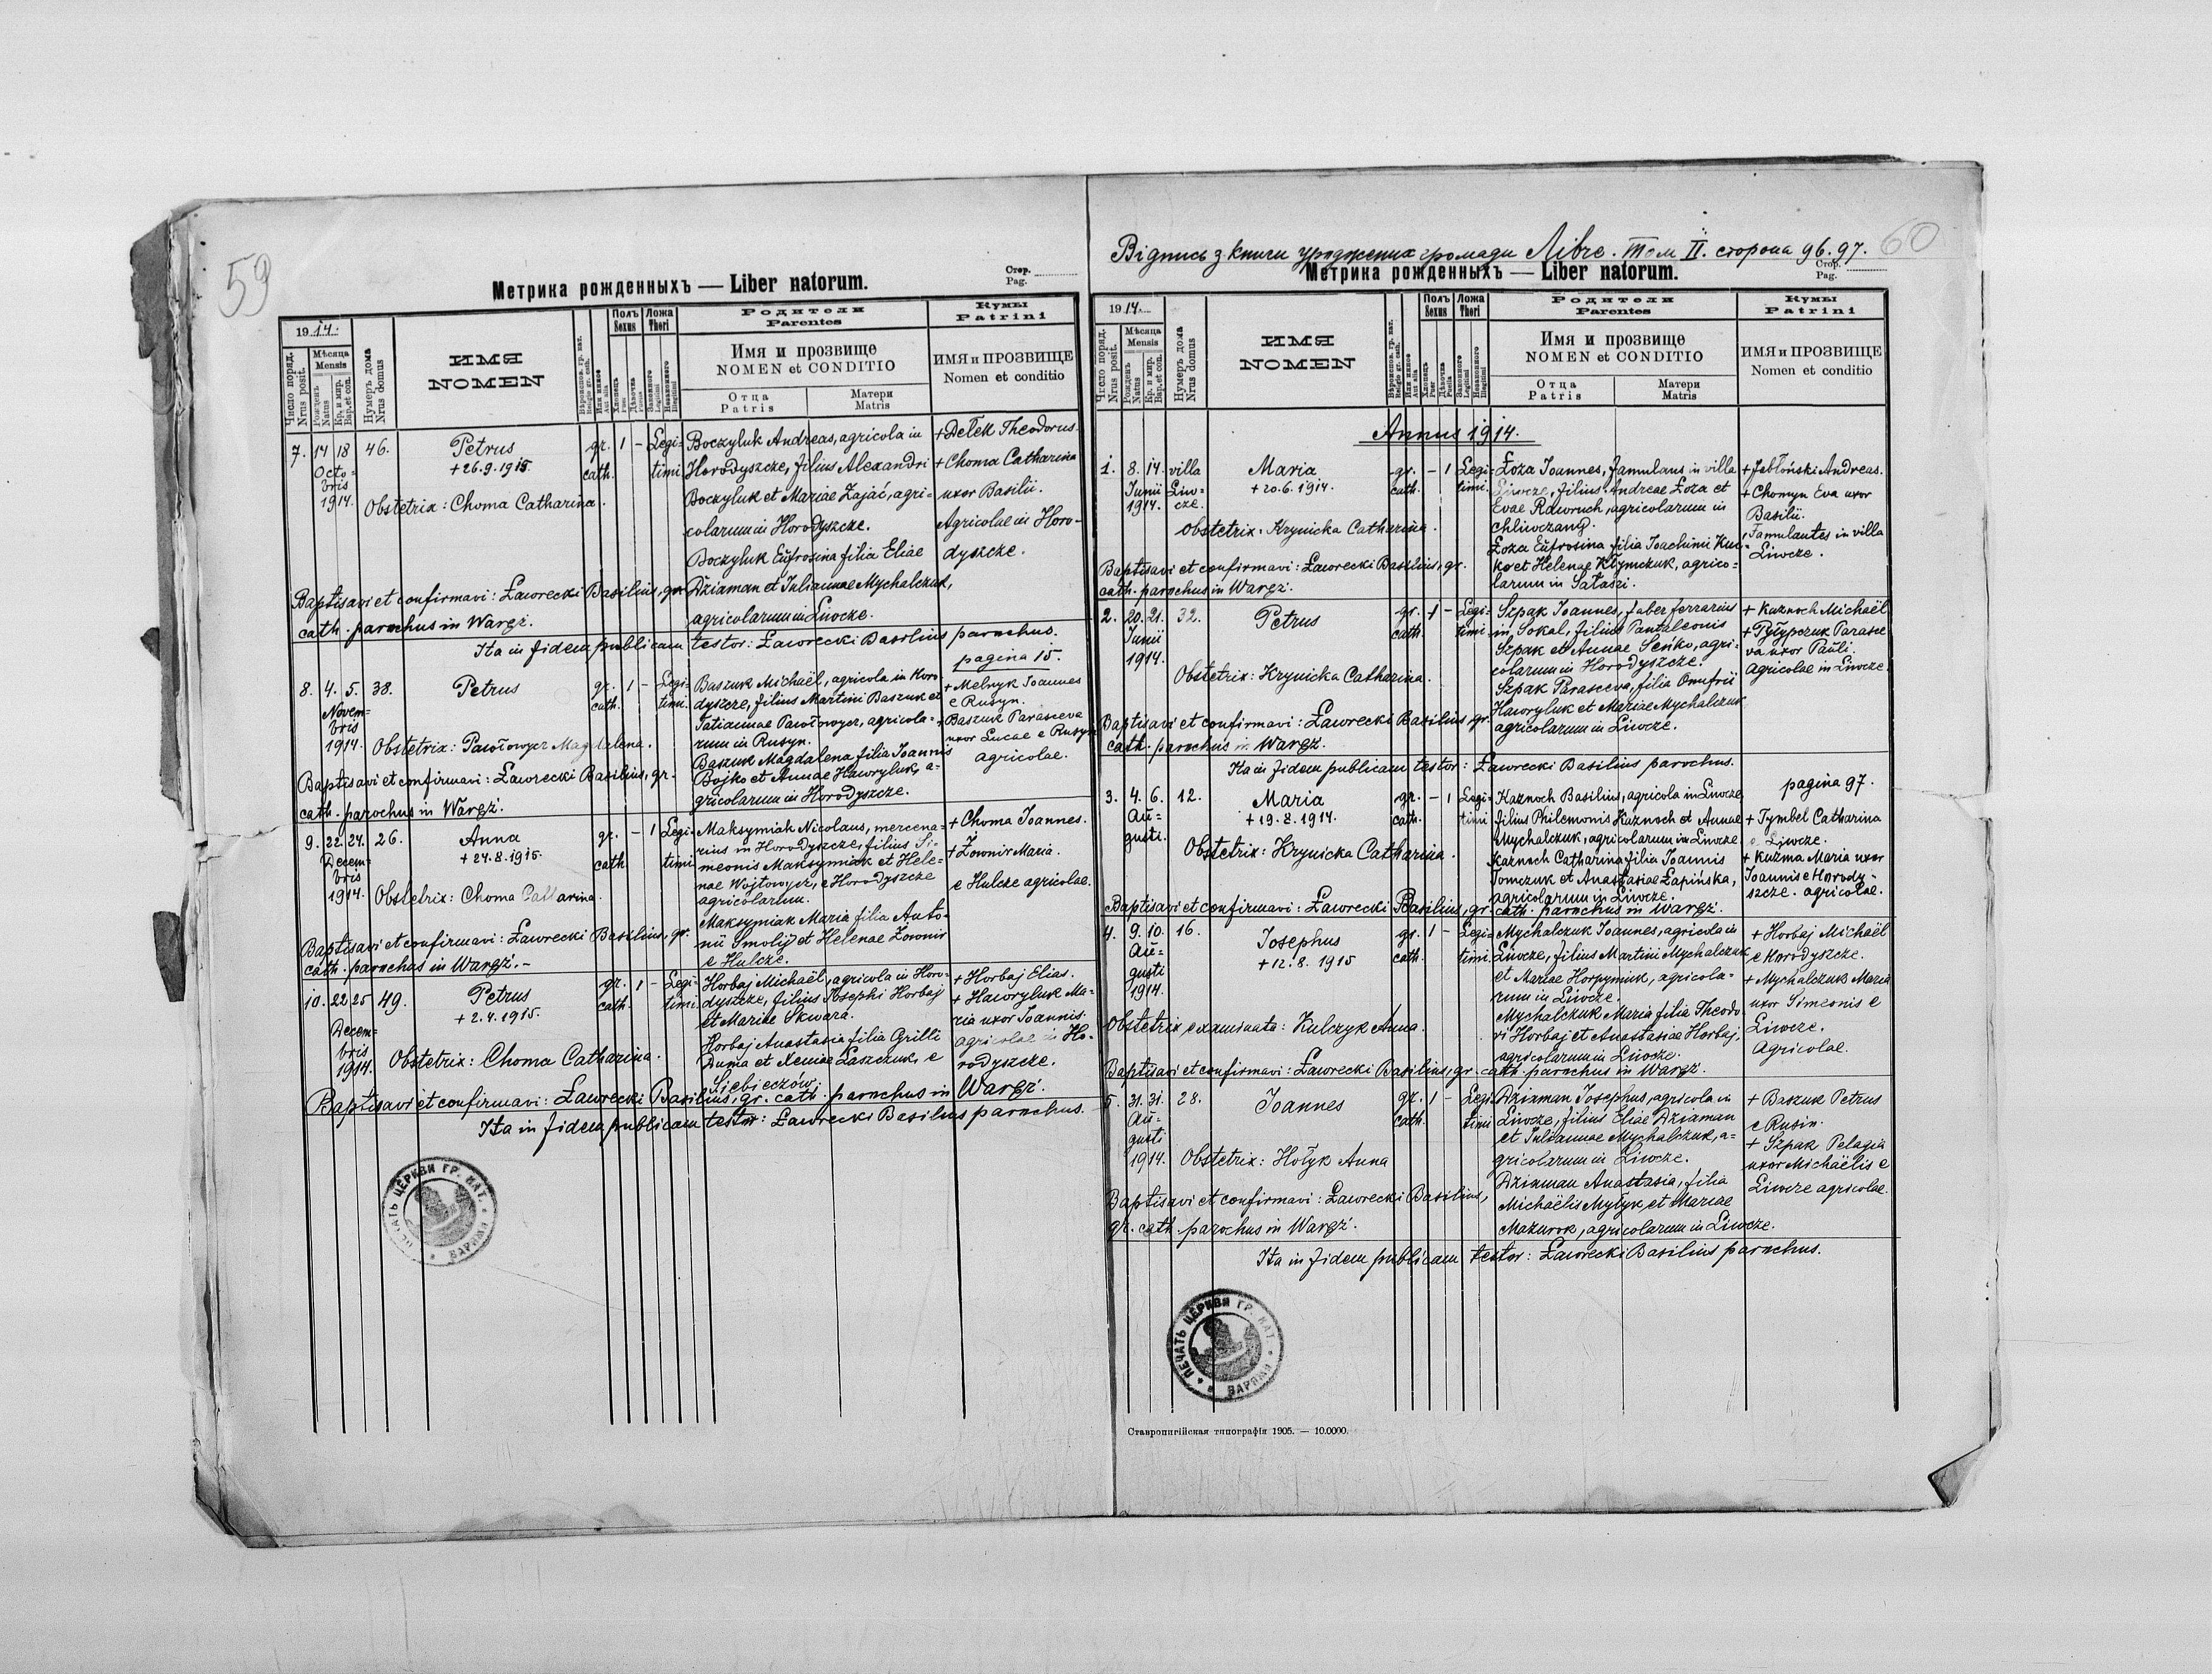 59
Метрика рожденныхъ — Liber natorum.
Стор.
Pag.
1914.
Число поряд.
Nrus posit.
Мѣсяца
Mensis
Рожденъ
Natus
Кр. и мир.
Bap. et con.
Нумеръ дома
Nrus domus
ИМЯ
NOMEN
Вѣроиспов. гр. кат.
Religio gr. cath.
Или иное
Aut alia
Полъ
Sexus
Хлопецъ
Puer
Дѣвочка
Puella
Ложа
Thori
Законного
Legitimi
Незаконного
Illegitimi
Родители
Parentes
Имя и прозвище
NOMEN et CONDITIO
Отца
Patris
Матери
Matris
Кумы
Patrini
ИМЯ и ПРОЗВИЩЕ
Nomen et conditio
7. 14 18 Octobris 1914. 46. Petrus gr. cath. 1 – Legitimi
+ 26.9.1915.
Obstetrix: Choma Catharina.
Boczyluk Andreas, agricola in
Horodyszcze, filius Alexandri
Boczyluk et Mariae Zająć, agri-
colarum in Horodyszcze.
Boczyluk Eufrosina filia Eliae
Dziaman et Iuliannae Mychalczuk,
agricolarum in Liwcze.
+ Detek Theodorus.
+ Choma Catharina
uxor Basilii.
Agricolae in Horo-
dyszcze.
Baptisavi et confirmavi: Ławrecki Basilius, gr.
cath. parochus in Waręż.
Ita in fidem publicam testor: Ławrecki Basilius parochus.
pagina 15.
8. 4. 5. Novembris 1914. 38. Petrus gr. cath. 1 – Legitimi.
Obstetrix: Pawłowycz Magdalena.
Baszuk Michaël, agricola in Horo-
dyszcze, filius Martini Baszuk et
Tatiannae Pawłowycz, agricola-
rum in Rusyn.
Baszuk Magdalena filia Ioannis
Bojko et Annae Hawryluk, a-
gricolarum in Horodyszcze.
+ Melnyk Ioannes
e Rusyn.
+ Baszuk Parasceva
uxor Lucae e Rusyn
agricolae.
Baptisavi et confirmavi: Ławrecki Basilius, gr.
cath. parochus in Waręż.
9. 22. 24. Decembris 1914. 26. Anna gr. cath – 1 Legitimi
+ 24.8.1915.
Obstetrix: Choma Catharina.
Maksymiak Nicolaus, mercena-
rius in Horodyszcze, filius Si-
meonis Maksymiak et Hele-
nae Wojtowycz, e Horodyszcze
agricolarum.
Maksymiak Maria filia Anto-
nii Smolij et Helenae Zownir
e Hulcze.
+ Choma Ioannes.
+ Zownir Maria.
e Hulcze agricolae.
Baptisavi et confirmavi: Ławrecki Basilius, gr.
cath. parochus in Waręż. –
10. 22 25 Decembris 1914. 49. Petrus gr. cath. 1 – Legitimi.
+ 2.4.1915.
Obstetrix: Choma Catharina.
Horbaj Michaël, agricola in Horo-
dyszcze, filius Iosephi Horbaj
et Mariae Skwara.
Horbaj Anastasia filia Grilli
Duma et Xeniae Laszczuk, e
Siebieczów.
+ Horbaj Elias.
+ Hawryluk Ma-
ria uxor Ioannis.
agricolae in Ho-
rodyszcze.
Baptisavi et confirmavi: Ławrecki Basilius, gr. cath. parochus in Waręż.
Ita in fidem publicam testor: Ławrecki Basilius parochus.
ПЕЧАТЬ ЦЕРКВИ ГР. КАТ.
60
Відпись з книги уряджених громади Лівче. Том II. сторона 96.97.
Метрика рожденныхъ — Liber natorum.
Стор.
Pag.
1914.
Число поряд.
Nrus posit.
Мѣсяца
Mensis
Рожденъ
Natus
Кр. и мир.
Bap. et con.
Нумеръ дома
Nrus domus
ИМЯ
NOMEN
Вѣроиспов. гр. кат.
Religio gr. cath.
Или иное
Aut alia
Полъ
Sexus
Хлопецъ
Puer
Дѣвочка
Puella
Ложа
Thori
Законного
Legitimi
Незаконного
Illegitimi
Родители
Parentes
Имя и прозвище
NOMEN et CONDITIO
Отца
Patris
Матери
Matris
Кумы
Patrini
ИМЯ и ПРОЗВИЩЕ
Nomen et conditio
Annus 1914.
1. 8. 14. Iunii 1914. villa Liwcze. Maria gr. cath. – 1 Legitimi.
+ 20.6.1914.
Obstetrix: Krynicka Catharina.
Łoza Ioannes, famulans in villa
Liwcze, filius Andreae Łoza et
Evae Rawruch, agricolarum in
Chliwczany.
Łoza Eufrosina filia Ioachimi Kun-
ko et Helenae Klymczuk, agrico-
larum in Sałaszi.
+ Jabłoński Andreas.
+ Chomyn Eva uxor
Basilii.
Famulantes in villa
Liwcze.
Baptisavi et confirmavi: Ławrecki Basilius, gr.
cath. parochus in Waręż.
2. 20. 21. Iunii 1914. 32. Petrus gr. cath. 1 – Legitimi
Obstetrix: Krynicka Catharina.
Szpak Ioannes, faber ferrarius
in Sokal, filius Pantaleonis
Szpak et Annae Seńko, agri-
colarum in Horodyszcze.
Szpak Parasceva, filia Onufrii
Hawryluk et Mariae Mychalczuk
agricolarum in Liwcze.
+ Kuznoch Michaël
+ Pyłypczuk Parasce
va uxor Pauli.
agricolae in Liwcze
Baptisavi et confirmavi: Ławrecki Basilius, gr.
cath. parochus in Waręż.
Ita in fidem publicam testor: Ławrecki Basilius parochus.
pagina 97.
3. 4. 6. Augusti. 12. Maria gr. cath. – 1 Legitimi
+ 19.8.1914.
Obstetrix: Krynicka Catharina.
Kaznoch Basilius, agricola in Liwcze,
filius Philemonis Kaznoch et Annae
Mychalczuk, agricolarum in Liwcze
Kaznoch Catharina filia Ioannis
Tomczuk et Anastasiae Łapińska,
agricolarum in Liwcze.
+ Tymbel Catharina
e Liwcze.
+ Kuzma Maria uxor
Ioannis e Horody-
szcze. agricolae.
Baptisavi et confirmavi: Ławrecki Basilius, gr. cath. parochus in Waręż.
4. 9. 10. Augusti 1914. 16. Iosephus gr. cath. 1 – Legitimi.
+ 12.8.1915
Obstetrix examinata: Kulczyk Anna.
Mychalczuk Ioannes, agricola in
Liwcze, filius Martini Mychalczuk
et Mariae Horpyniuk, agricola-
rum in Liwcze.
Mychalczuk Maria filia Theodo-
ri Horbaj et Anastasiae Horbaj,
agricolarum in Liwcze.
+ Horbaj Michaël
e Horodyszcze.
+ Mychalczuk Maria
uxor Simeonis e
Liwcze.
Agricolae.
Baptisavi et confirmavi: Ławrecki Basilius, gr. cath. parochus in Waręż.
5. 31. 31. Augusti 1914. 28. Ioannes gr. cath. 1 – Legitimi
Obstetrix: Hołyk Anna
Dziaman Iosephus, agricola in
Liwcze, filius Eliae Dziaman
et Iuliannae Mychalczuk, a-
gricolarum in Liwcze.
Dziaman Anastasia, filia
Michaëlis Myłyk et Mariae
Mazurok, agricolarum in Liwcze.
+ Baszuk Petrus
e Rusin.
+ Szpak Pelagia
uxor Michaëlis e
Liwcze agricolae.
Baptisavi et confirmavi: Ławrecki Basilius,
gr. cath. parochus in Waręż.
Ita in fidem publicam testor: Ławrecki Basilius parochus.
ПЕЧАТЬ ЦЕРКВИ ГР. КАТ.
Ставропигійская типографія 1905. — 10.0000.